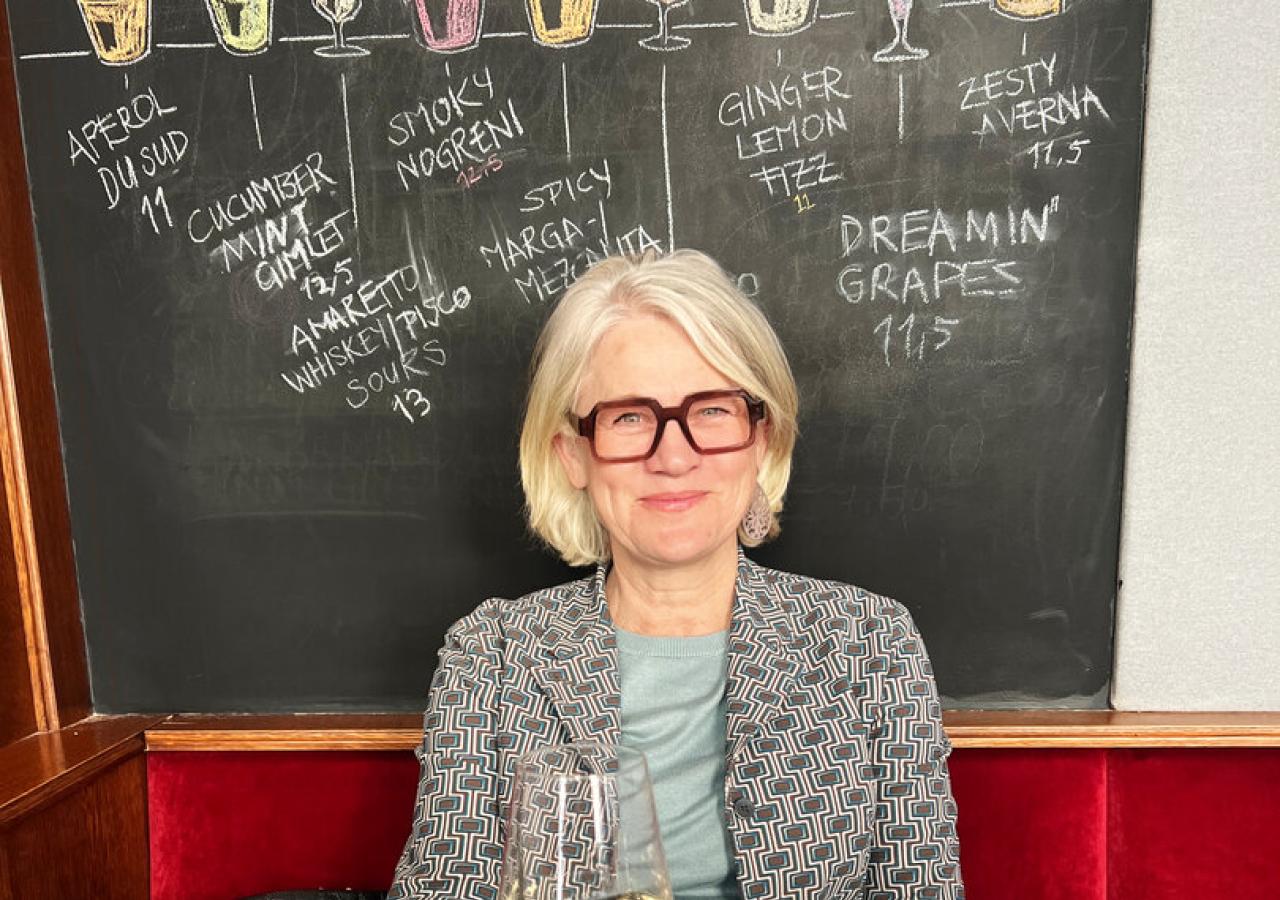 APEROL
DU SUD
11
CUCUMBER
MINT
GIMLET
12,5
AMARETTO
WHISKEY/PISCO
SOURS
13
SMOKY
NOGRENI
12,5
SPICY
MARGA-/
GINGER
LEMON
FIZZ
11
ZESTY
AVERNA
11,5
DREAMIN"
GRAPES
11,5